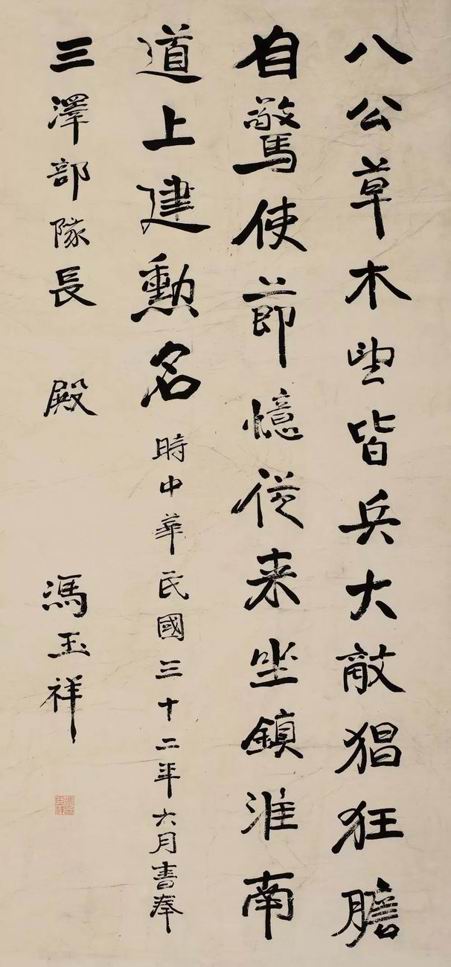 八公草木望皆兵大敵猖狂膽
自驚使節憶從来坐鎮淮南
道上建勲名時中華民國三十二年六月書奉
三澤部隊長 殿 馮玉祥